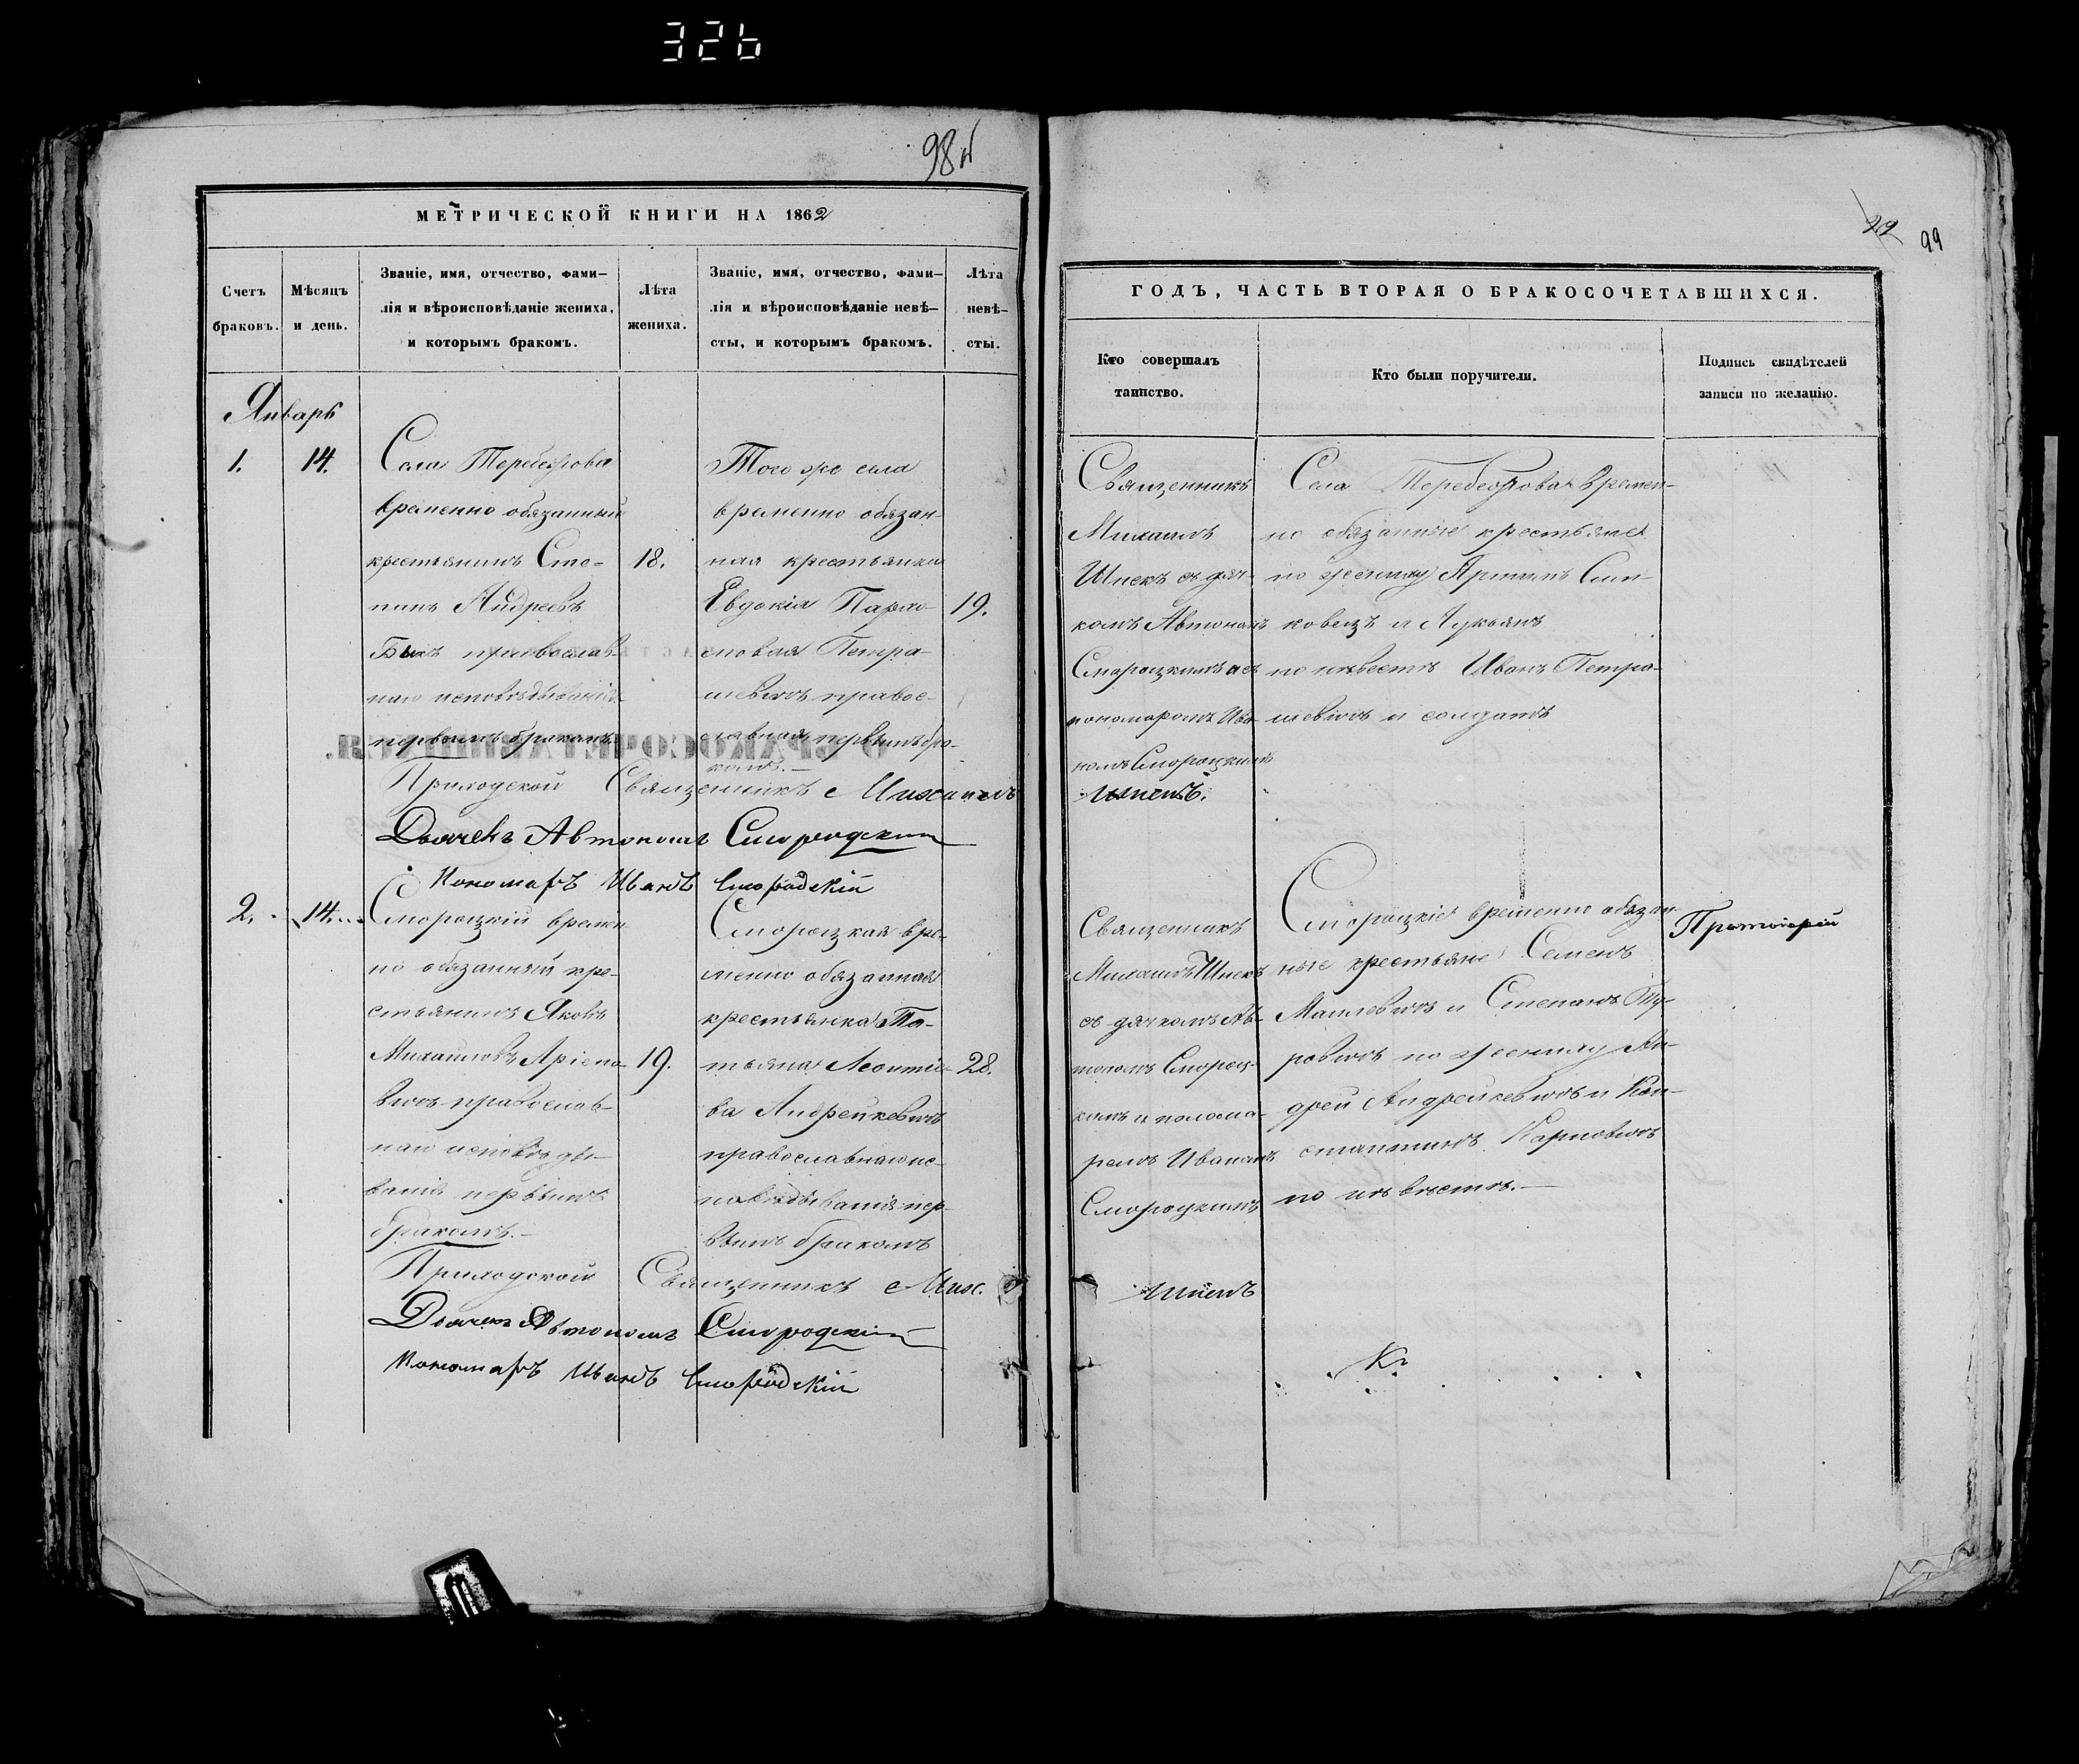 326
98 об
МЕТРИЧЕСКОЙ КНИГИ НА 1862
Счетъ
браковъ.
Мѣсяцъ
и день.
Званіе, имя, отчество, фами–
лія и вѣроисповѣданіе жениха,
и которымъ бракомъ.
Лѣта
жениха.
Званіе, имя, отчество, фами–
лія и вѣроисповѣданіе невѣ–
сты, и которымъ бракомъ.
Лѣта
невѣ–
сты.
Январь
1.
14.
Села Теребежова
временно обязанный
крестьянинъ Сте-
панъ Андреевъ
православ-
наго исповѣдыванія
первымъ бракомъ.
18.
Того же села
временно обязан-
ная крестьянка
Евдокія Парѳе-
новая Петра-
шевичъ правос-
лавная, первымъ бра-
комъ.–
19.
Приходской Священникъ Михаилъ
Дьячекъ Автономъ Смородскій
Пономарь Иванъ Смородскій
2.
14.
Смороцкій времен
но обязанный кре-
стьянинъ Яковъ
Михаиловъ
вичъ православ-
наго исповѣды-
ванія первымъ
бракомъ.–
19.
Смороцкая вре-
менно обязанная
крестьянка Та-
тьяна Леонтіе-
ва Андрейкевичъ
православнаго ис-
повѣдыванія пер-
вымъ бракомъ
28.
Приходской Священникъ Мих.
Дьячекъ Автономъ Смородскій
Пономарь Иванъ Смородскій
29 99
ГОДЪ, ЧАСТЬ ВТОРАЯ О БРАКОСОЧЕТАВШИХСЯ.
Кто совершалъ
таинство.
Кто были поручители.
Подпись свидѣтелей
записи по желанію.
Священникъ
Михаилъ
Шпекъ съ дяч-
комъ Автоном
Смороцкимъ и съ
пономаромъ Ива-
номъ Смороцкимъ
Села Теребежова времен-
но обязанные крестьяне
по жениху
ковецъ и Лукьянъ
по невѣстѣ Иванъ Петра-
шевичъ и солдатъ
Шпекъ.
Священникъ
Михаилъ Шпекъ
съ дячкомъ Ав-
тономъ Смороц-
кимъ и понома-
ремъ Иваномъ
Смороцкимъ
Смороцкіе временно обязан
ные крестьяне Семенъ
и Степанъ
ровичъ по жениху Ан-
дрей Андрейкевичъ и Кон-
стантинъ Карповичъ
по невѣстѣ.–
Протоіерей
Шпекъ